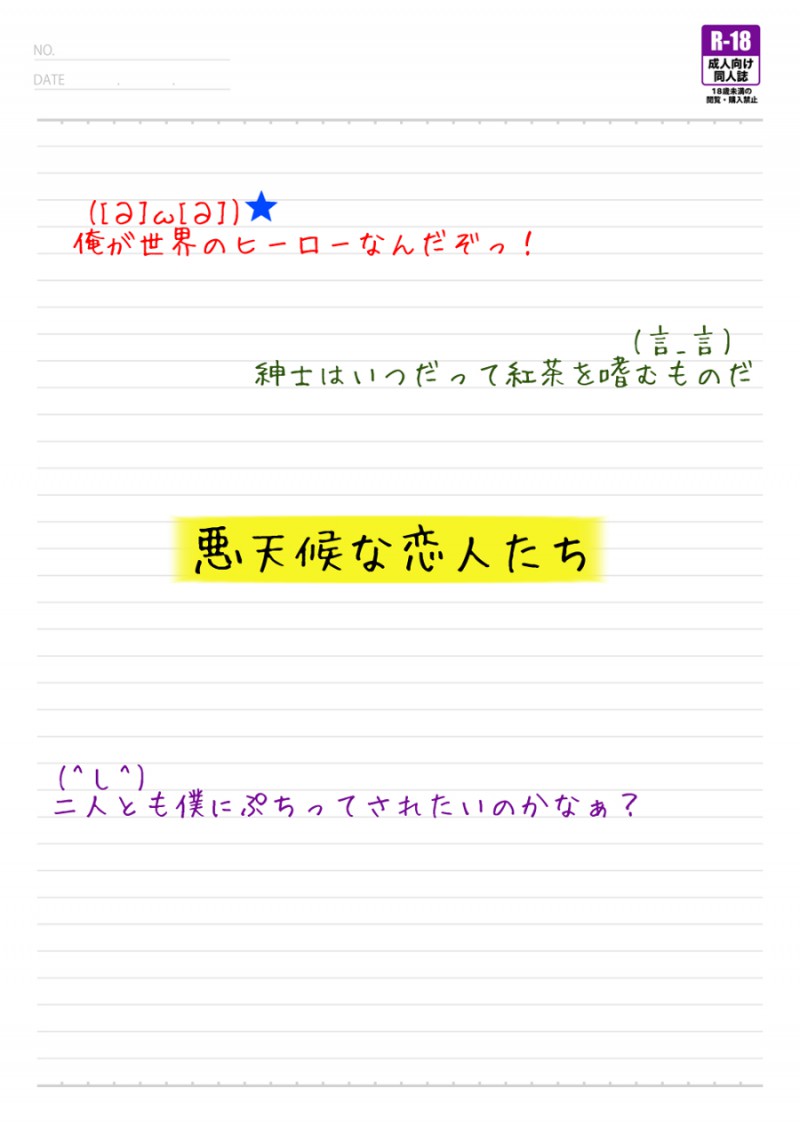 NO.
DATE . .
R-18
成人向け
同人誌
18歳未満の
閲覧・購入禁止
([∂]ω[∂])★
俺が世界のヒーローなんだぞっ!
(言_言)
紳士はいつだって紅茶を嗜むものだ
悪天候な恋人たち
(^し^)
二人とも僕にぷちってされたいのかなぁ?